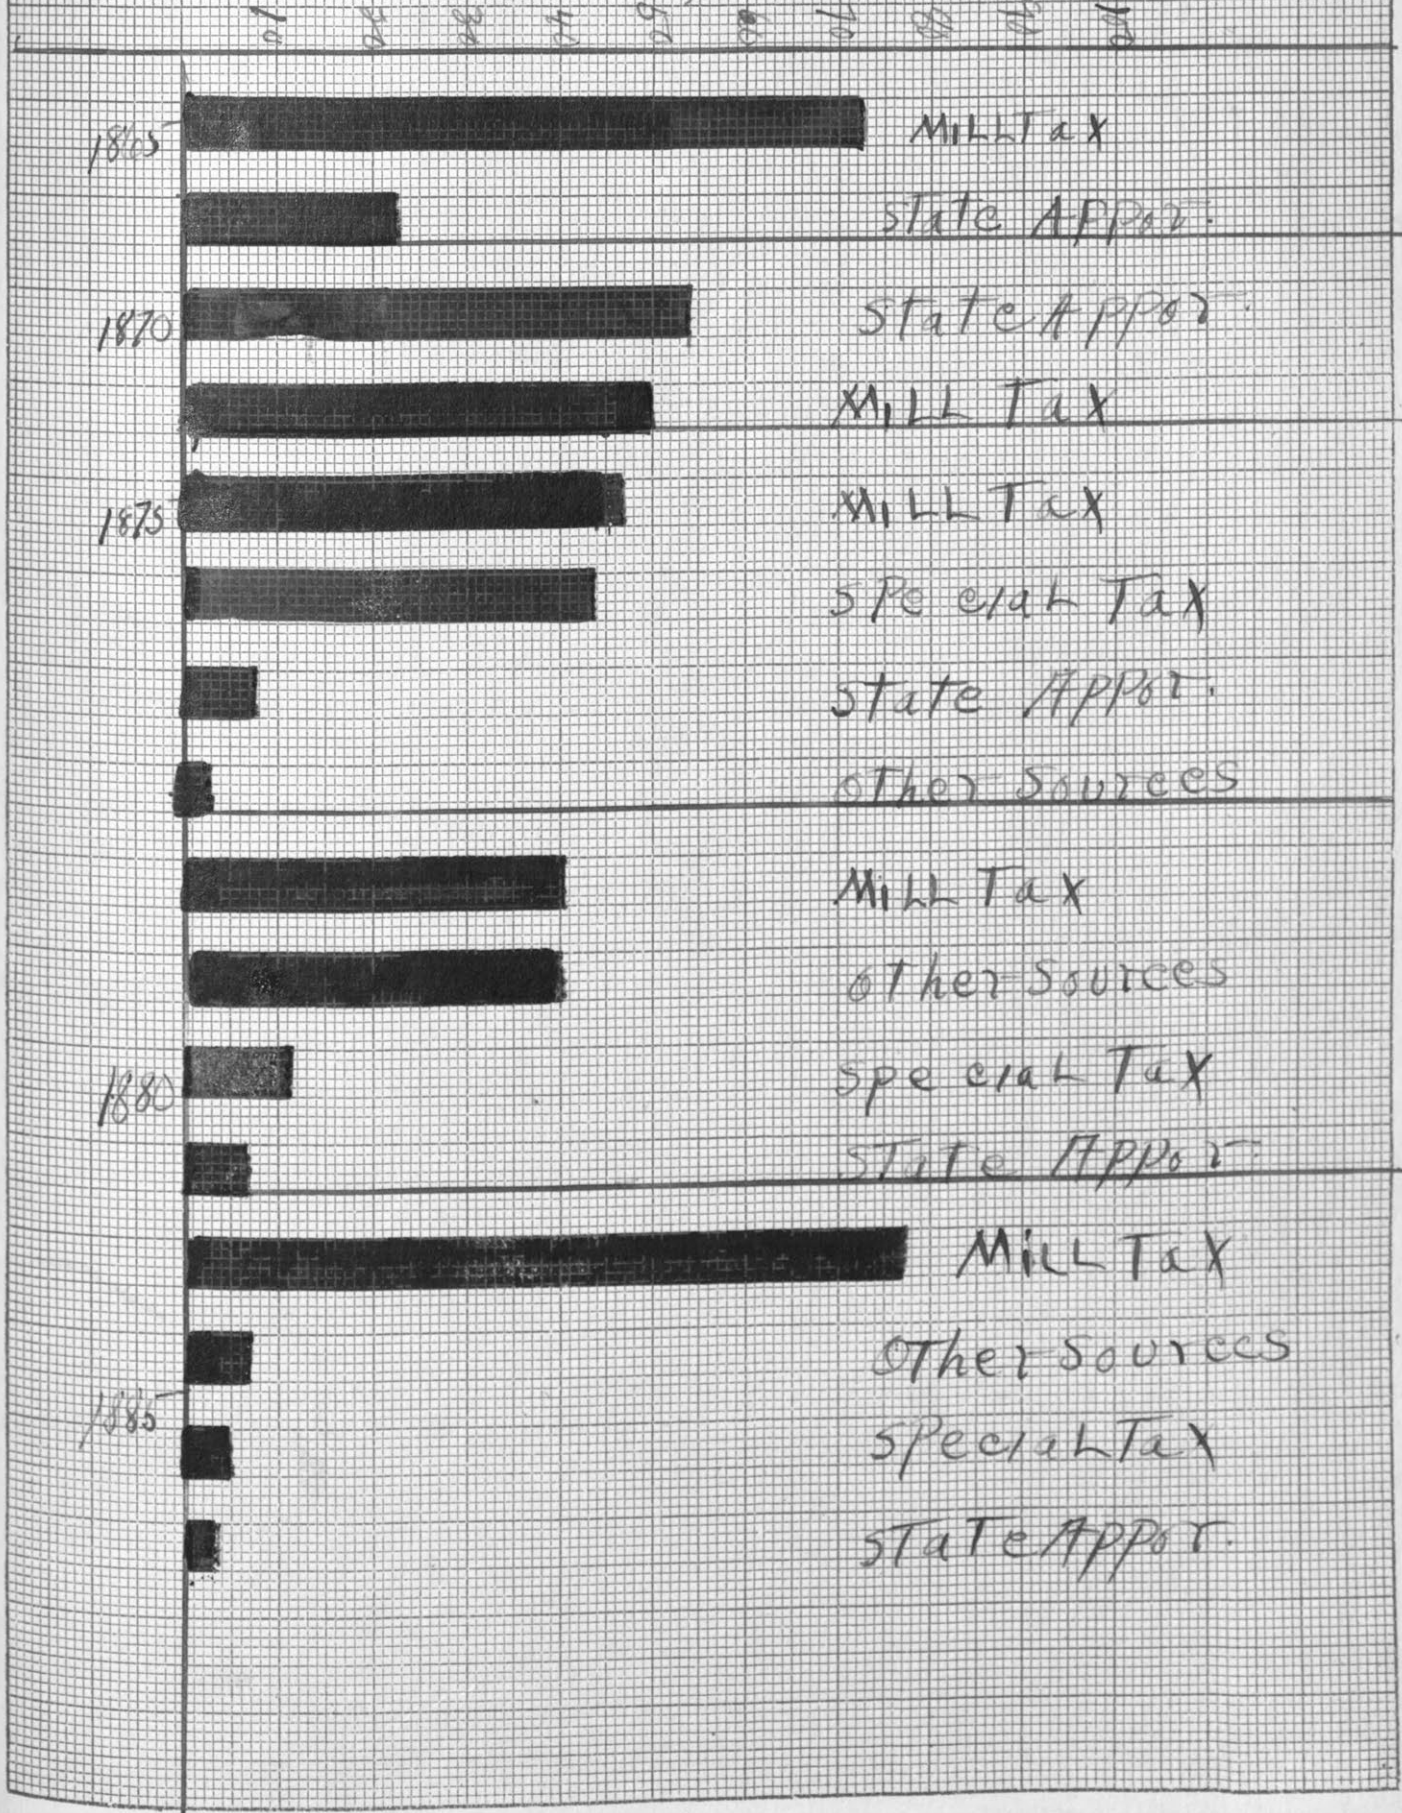 10 20 30 40 50 60 70 80 90 100
1865 MiLLTax
State Appor.
1870 State Appor.
MiLL Tax
1875 MiLL Tax
Special Tax
State Appor.
Other Sources
MiLL Tax
Other Sources
1880 Special Tax
State Appor.
MiLL Tax
Other Sources
1885
Special Tax
State Appor.